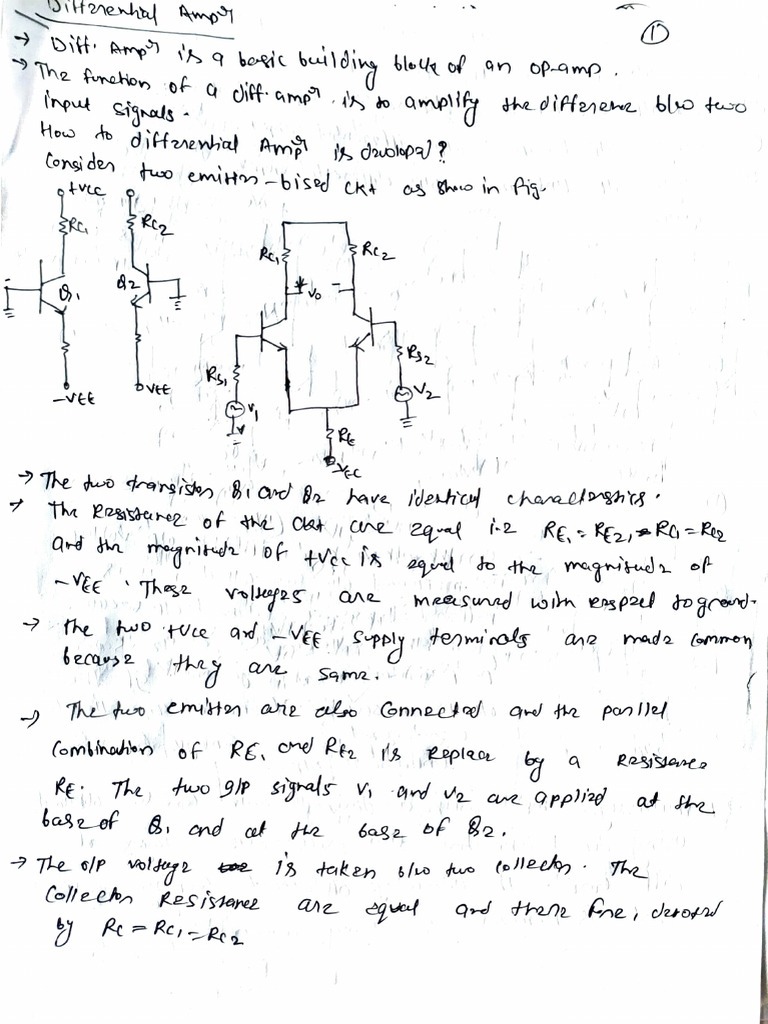 Differential Ampr
①
→ Diff. Ampr is a basic building block of an op-amp.
→ The function of a diff. ampr is to amplify the difference b/w two
input signals.
How to differential Ampr is devloped?
Consider two emitter-bised ckt as show in fig.
+VCC
RC1
RC2
Q1
Q2
-VEE
VEE
RC1
RC2
+ Vo -
RS1
RS2
V1
V2
RE
→ The two transistor Q1 and Q2 have identical characterstics.
→ The Resistance of the ckt are equal i.e RE1 = RE2, RC1 = RC2
and the magnitude of +Vcc is equal to the magnitude of
-VEE. These voltages are measured with respect to ground.
→ the two +Vcc and -VEE supply terminals are made common
because they are same.
→ The two emitter are also Connected and the parllel
Combination of RE1 and RE2 is replace by a Resistance
RE. The two I/P signals V1 and V2 are applied at the
base of Q1 and at the base of Q2.
→ The o/p voltage is taken b/w two collector. The
Collector Resistance are equal and there fore, denoted
by RC = RC1 = RC2